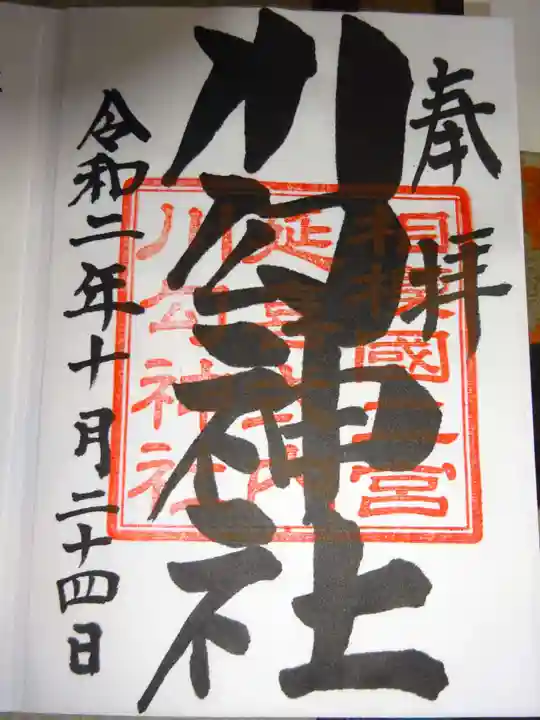 奉拝
川勾神社
令和二年十月二十四日
相模國二宮
延喜式内
川勾神社